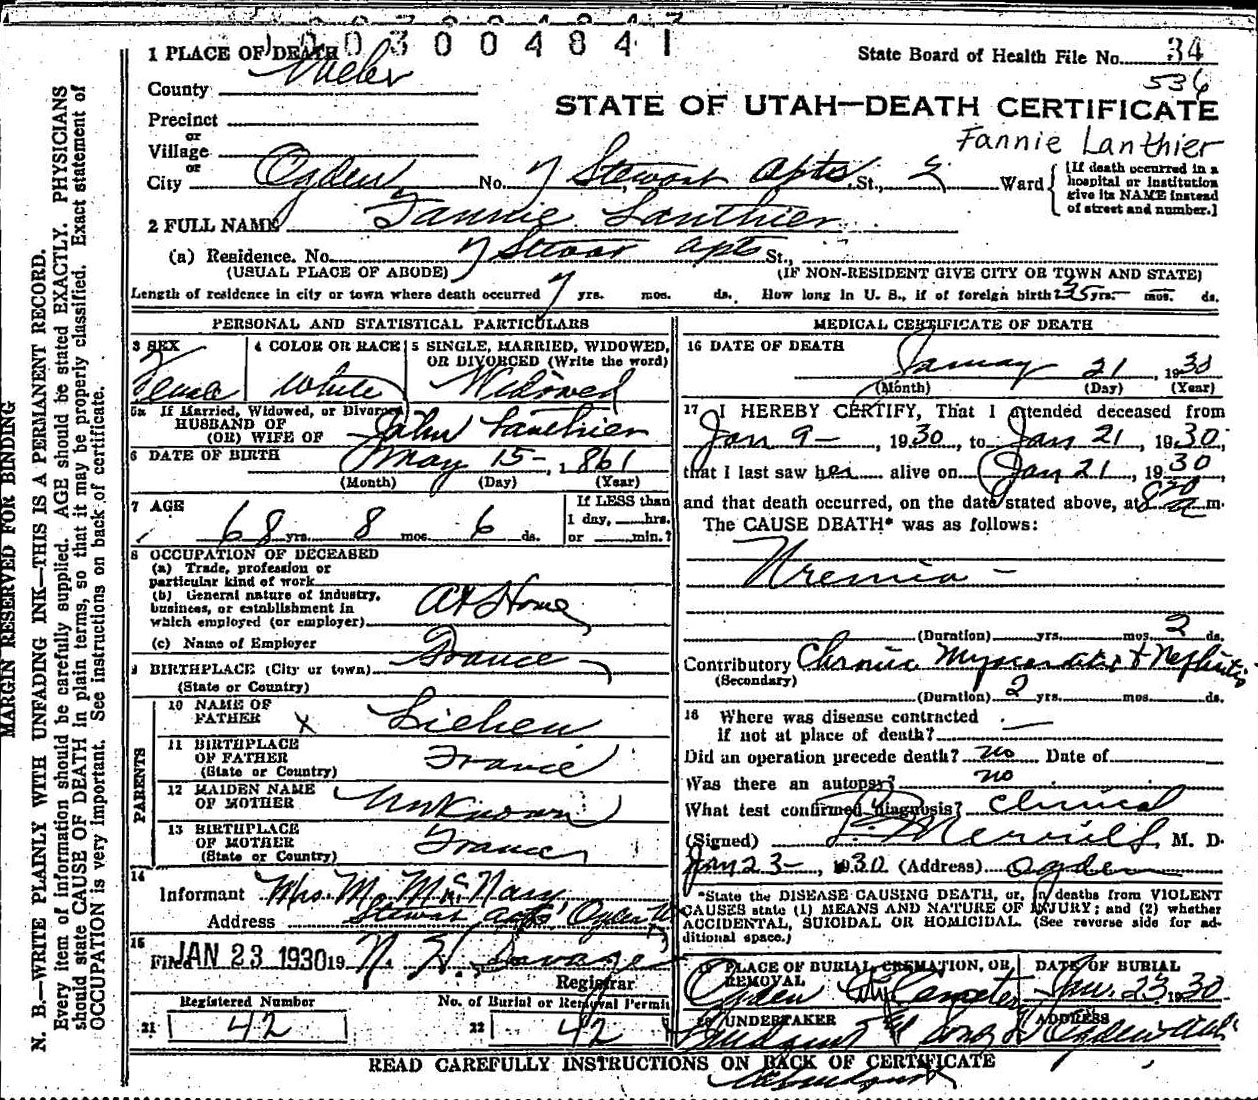 003004841
1 PLACE OF DEATH
State Board of Health File No. 34
536
County Weber
STATE OF UTAH—DEATH CERTIFICATE
Precinct
or
Village
Fannie Lanthier
or
City Ogden No. 7 Stewart Apts St., 2 Ward
[If death occurred in a hospital or institution give its NAME instead of street and number.]
2 FULL NAME Fannie Lanthier
(a) Residence. No. 7 Stewart Apts St.,
(USUAL PLACE OF ABODE) (IF NON-RESIDENT GIVE CITY OR TOWN AND STATE)
Length of residence in city or town where death occurred 7 yrs. mos. ds. How long in U. S., if of foreign birth? 35 yrs. — mos. ds.
PERSONAL AND STATISTICAL PARTICULARS
3 SEX
Female
4 COLOR OR RACE
White
5 SINGLE, MARRIED, WIDOWED,
OR DIVORCED (Write the word)
Widowed
5a If Married, Widowed, or Divorced
HUSBAND OF
(OR) WIFE OF John Lanthier
6 DATE OF BIRTH May 15-, 1861
(Month) (Day) (Year)
7 AGE
68 yrs. 8 mos. 6 ds.
If LESS than
1 day, hrs.
or min.?
8 OCCUPATION OF DECEASED
(a) Trade, profession or
particular kind of work
(b) General nature of industry,
business, or establishment in
which employed (or employer) At Home
(c) Name of Employer
9 BIRTHPLACE (City or town) France
(State or Country)
PARENTS
10 NAME OF
FATHER X
11 BIRTHPLACE
OF FATHER France
(State or Country)
12 MAIDEN NAME
OF MOTHER Unknown
13 BIRTHPLACE
OF MOTHER France
(State or Country)
14
Informant Mrs. M. McNary
Address Stewart Apts Ogden
15
Filed JAN 23 1930 19 Savage
Registrar
Registered Number
21 42
No. of Burial or Removal Permit
22 42
MEDICAL CERTIFICATE OF DEATH
16 DATE OF DEATH
January 21, 1930
(Month) (Day) (Year)
17 I HEREBY CERTIFY, That I attended deceased from
Jan 9-, 1930, to Jan 21, 1930
that I last saw her alive on Jan 21, 1930
and that death occurred, on the date stated above, at 8 20 a m.
The CAUSE DEATH* was as follows:
Uremia -
(Duration) yrs. mos. 2 ds.
Contributory Chronic Myocarditis + Nephritis
(Secondary)
(Duration) 2 yrs. mos. ds.
18 Where was disease contracted
if not at place of death? —
Did an operation precede death? no Date of
Was there an autopsy? no
What test confirmed diagnosis? Clinical
(Signed) Merrill, M. D.
Jan 23-, 1930 (Address) Ogden
*State the DISEASE CAUSING DEATH, or, in deaths from VIOLENT
CAUSES state (1) MEANS AND NATURE OF INJURY; and (2) whether
ACCIDENTAL, SUICIDAL OR HOMICIDAL. (See reverse side for ad-
ditional space.)
19 PLACE OF BURIAL, CREMATION, OR
REMOVAL
Ogden City Cemetery
DATE OF BURIAL
Jan. 23, 1930
20 UNDERTAKER
ADDRESS
Ogden Utah
READ CAREFULLY INSTRUCTIONS ON BACK OF CERTIFICATE
MARGIN RESERVED FOR BINDING
N. B.—WRITE PLAINLY WITH UNFADING INK—THIS IS A PERMANENT RECORD.
Every item of information should be carefully supplied. AGE should be stated EXACTLY. PHYSICIANS
should state CAUSE OF DEATH in plain terms, so that it may be properly classified. Exact statement of
OCCUPATION is very important. See instructions on back of certificate.